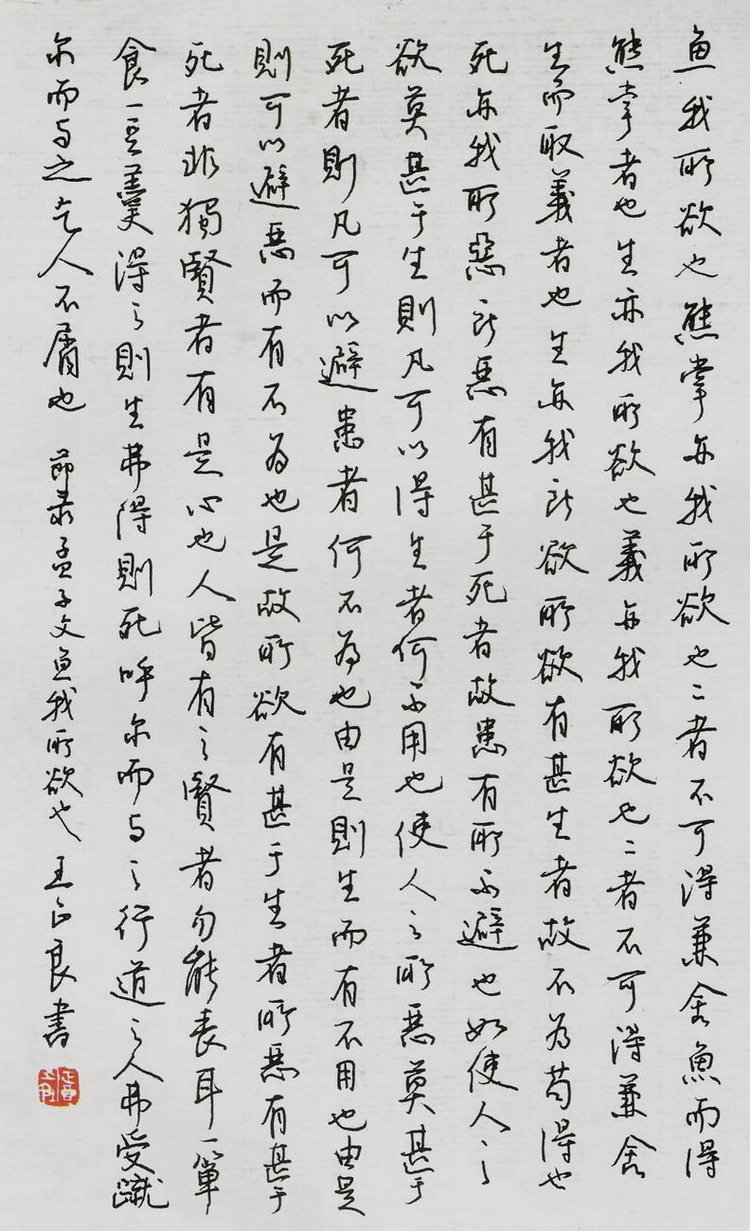 魚我所欲也熊掌亦我所欲也二者不可得兼舍魚而得
熊掌者也生亦我所欲也義亦我所欲也二者不可得兼舍
生而取義者也生亦我所欲所欲有甚生者故不為苟得也
死亦我所惡所惡有甚于死者故患有所不避也如使人之
欲莫甚于生則凡可以得生者何不用也使人之所惡莫甚于
死者則凡可以避患者何不為也由是則生而有不用也由是
則可以避惡而有不為也是故所欲有甚于生者所惡有甚于
死者非獨賢者有是心也人皆有之賢者勿能喪耳一簞
食一豆羹得之則生弗得則死呼尔而与之行道之人弗受蹴
尔而与之乞人不屑也 節录孟子文魚我所欲也 王正良書